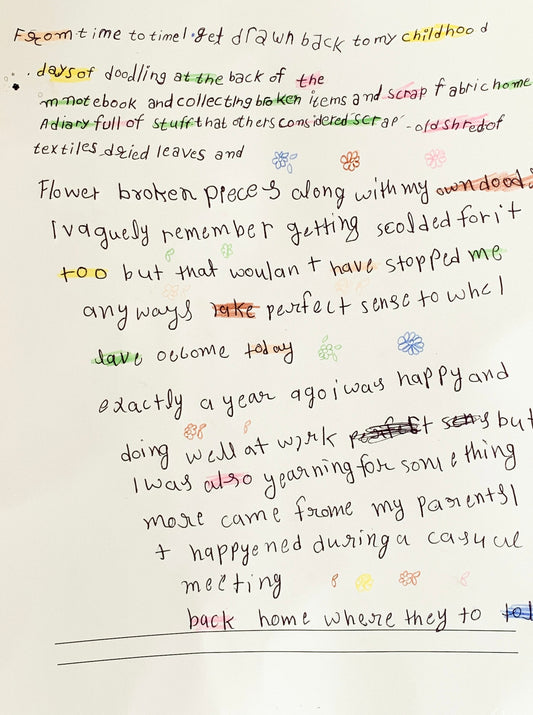 From time to time I get drawn back to my childhood
days of doodling at the back of the
m notebook and collecting broken items and scrap fabric home
A diary full of stuff that others considered scrap - old shred of
textiles dried leaves and
Flower broken pieces along with my own dood
I vaguely remember getting scolded for it
too but that woulan t have stopped me
any ways perfect sense to wha I
lave become today
exactly a year ago i was happy and
doing well at work but
I was also yearning for some thing
more came frome my parents I
t happyened during a casual
meeting
back home where they to